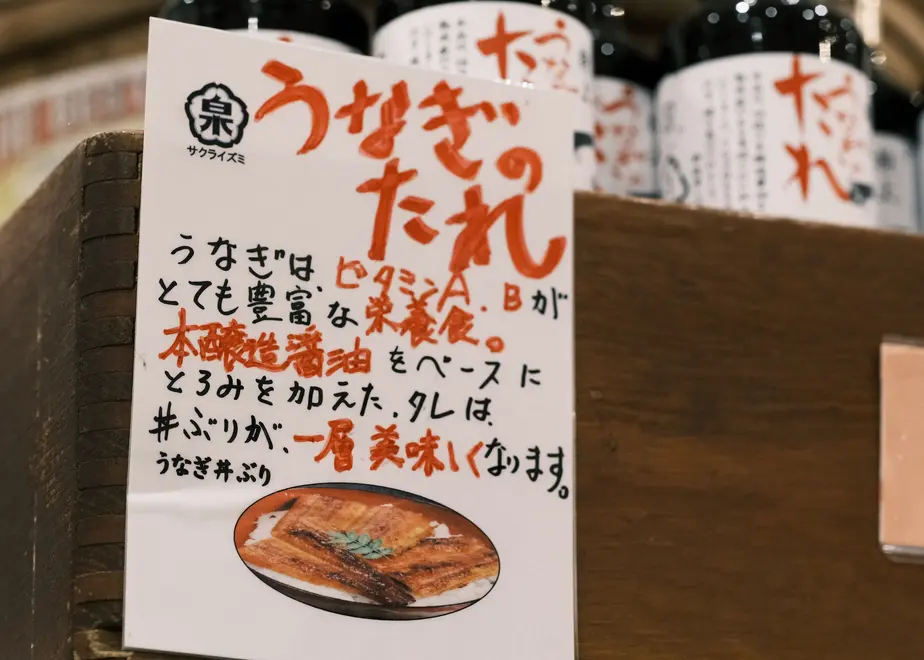 泉
サクライズミ
うなぎの
たれ
うなぎは、ビタミンA、Bが
とても豊富な栄養食。
本醸造醤油をベースに
とろみを加えた、タレは、
丼ぶりが、一層美味しくなります。
うなぎ丼ぶり
たれ
たれ